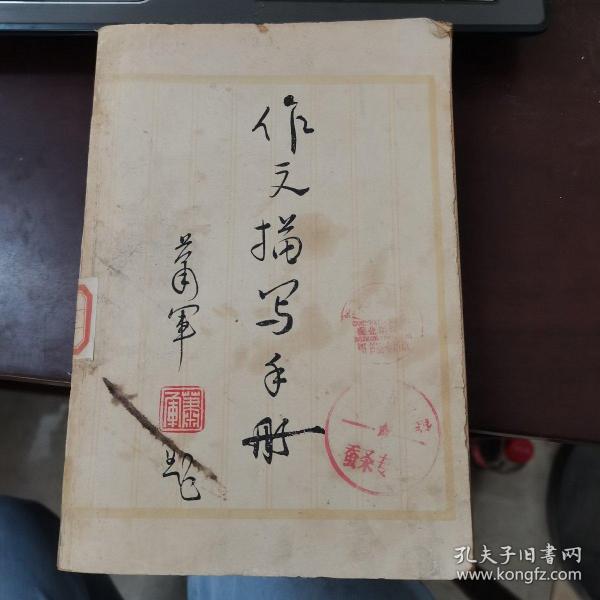 作文描写手册
萧军
萧军
题
蚕桑专
孔夫子旧书网
www.kongfz.com